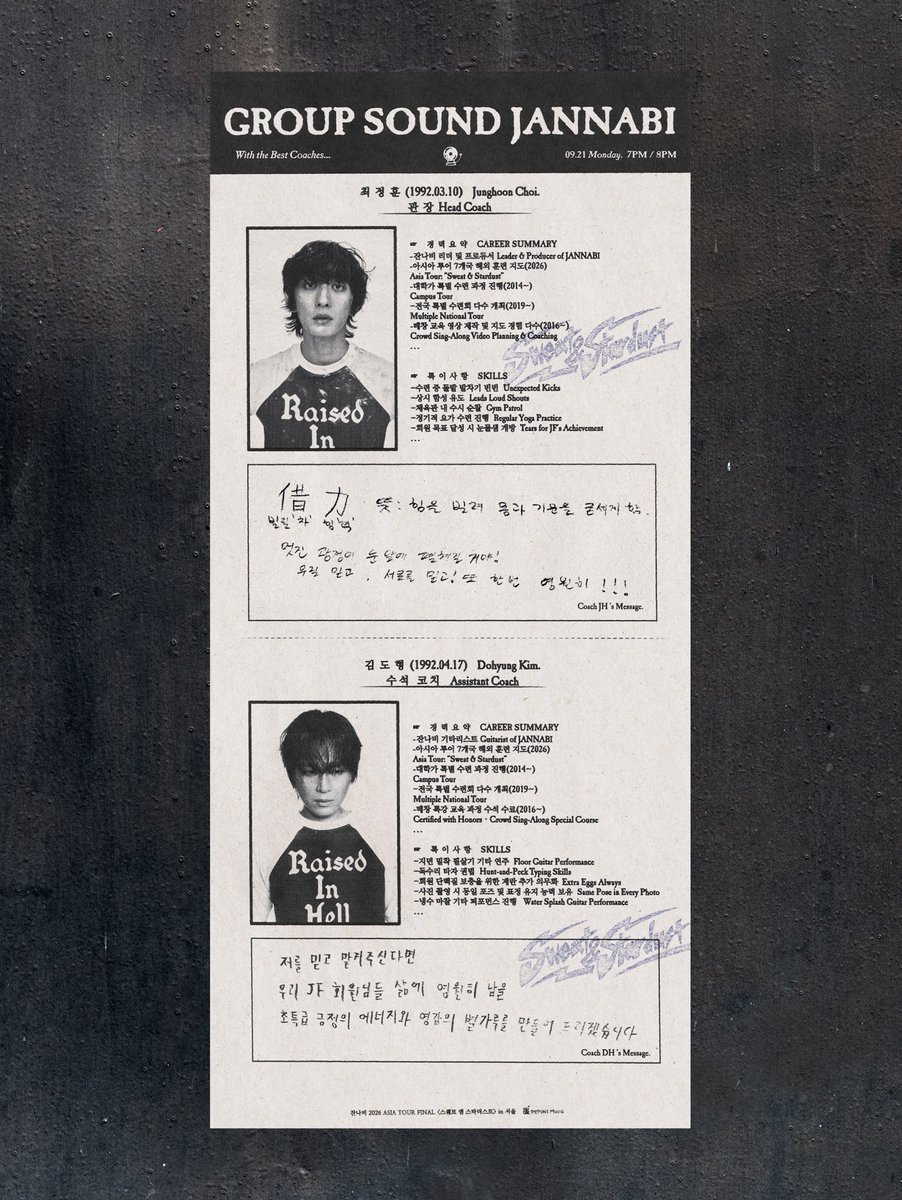 GROUP SOUND JANNABI
With the Best Coaches...
09.21 Monday. 7PM / 8PM
최 정 훈 (1992.03.10) Junghoon Choi.
관 장 Head Coach
Raised
In
☛ 경 력 요 약 CAREER SUMMARY
-잔나비 리더 및 프로듀서 Leader & Producer of JANNABI
-아시아 투어 7개국 해외 훈련 지도(2026)
Asia Tour: "Sweat & Stardust"
-대학가 특별 수련 과정 진행(2014~)
Campus Tour
-전국 특별 수련회 다수 개최(2019~)
Multiple National Tour
-떼창 교육 영상 제작 및 지도 경험 다수(2016~)
Crowd Sing-Along Video Planning & Coaching
...
Sweat & Stardust
☛ 특 이 사 항 SKILLS
-수련 중 돌발 발차기 빈번 Unexpected Kicks
-상시 함성 유도 Leads Loud Shouts
-체육관 내 수시 순찰 Gym Patrol
-정기적 요가 수련 진행 Regular Yoga Practice
-회원 목표 달성 시 눈물샘 개방 Tears for JF's Achievement
...
借 力 뜻: 힘을 빌려 몸과 기운을 굳세게 함.
빌릴 '차' 힘 '력'
멋진 광경이 눈 앞에 펼쳐질 거야!
우릴 믿고, 서로를 믿고! 또 한번 영원히 !!!
Coach JH's Message.
김 도 형 (1992.04.17) Dohyung Kim.
수석 코치 Assistant Coach
Raised
In
Hell
☛ 경 력 요 약 CAREER SUMMARY
-잔나비 기타리스트 Guitarist of JANNABI
-아시아 투어 7개국 해외 훈련 지도(2026)
Asia Tour: "Sweat & Stardust"
-대학가 특별 수련 과정 진행(2014~)
Campus Tour
-전국 특별 수련회 다수 개최(2019~)
Multiple National Tour
-떼창 특강 교육 과정 수석 수료(2016~)
Certified with Honors · Crowd Sing-Along Special Course
...
☛ 특 이 사 항 SKILLS
-지면 밀착 필살기 기타 연주 Floor Guitar Performance
-독수리 타자 권법 Hunt-and-Peck Typing Skills
-회원 단백질 보충을 위한 계란 추가 의무화 Extra Eggs Always
-사진 촬영 시 동일 포즈 및 표정 유지 능력 보유 Same Pose in Every Photo
-냉수 마찰 기타 퍼포먼스 진행 Water Splash Guitar Performance
...
Sweat & Stardust
저를 믿고 맡겨주신다면
우리 JF 회원님들 삶에 영원히 남을
초특급 긍정의 에너지와 영감의 별가루를 만들어 드리겠습니다
Coach DH's Message.
잔나비 2026 ASIA TOUR FINAL <스웨트 앤 스타더스트> in 서울 PEPONI MUSIC